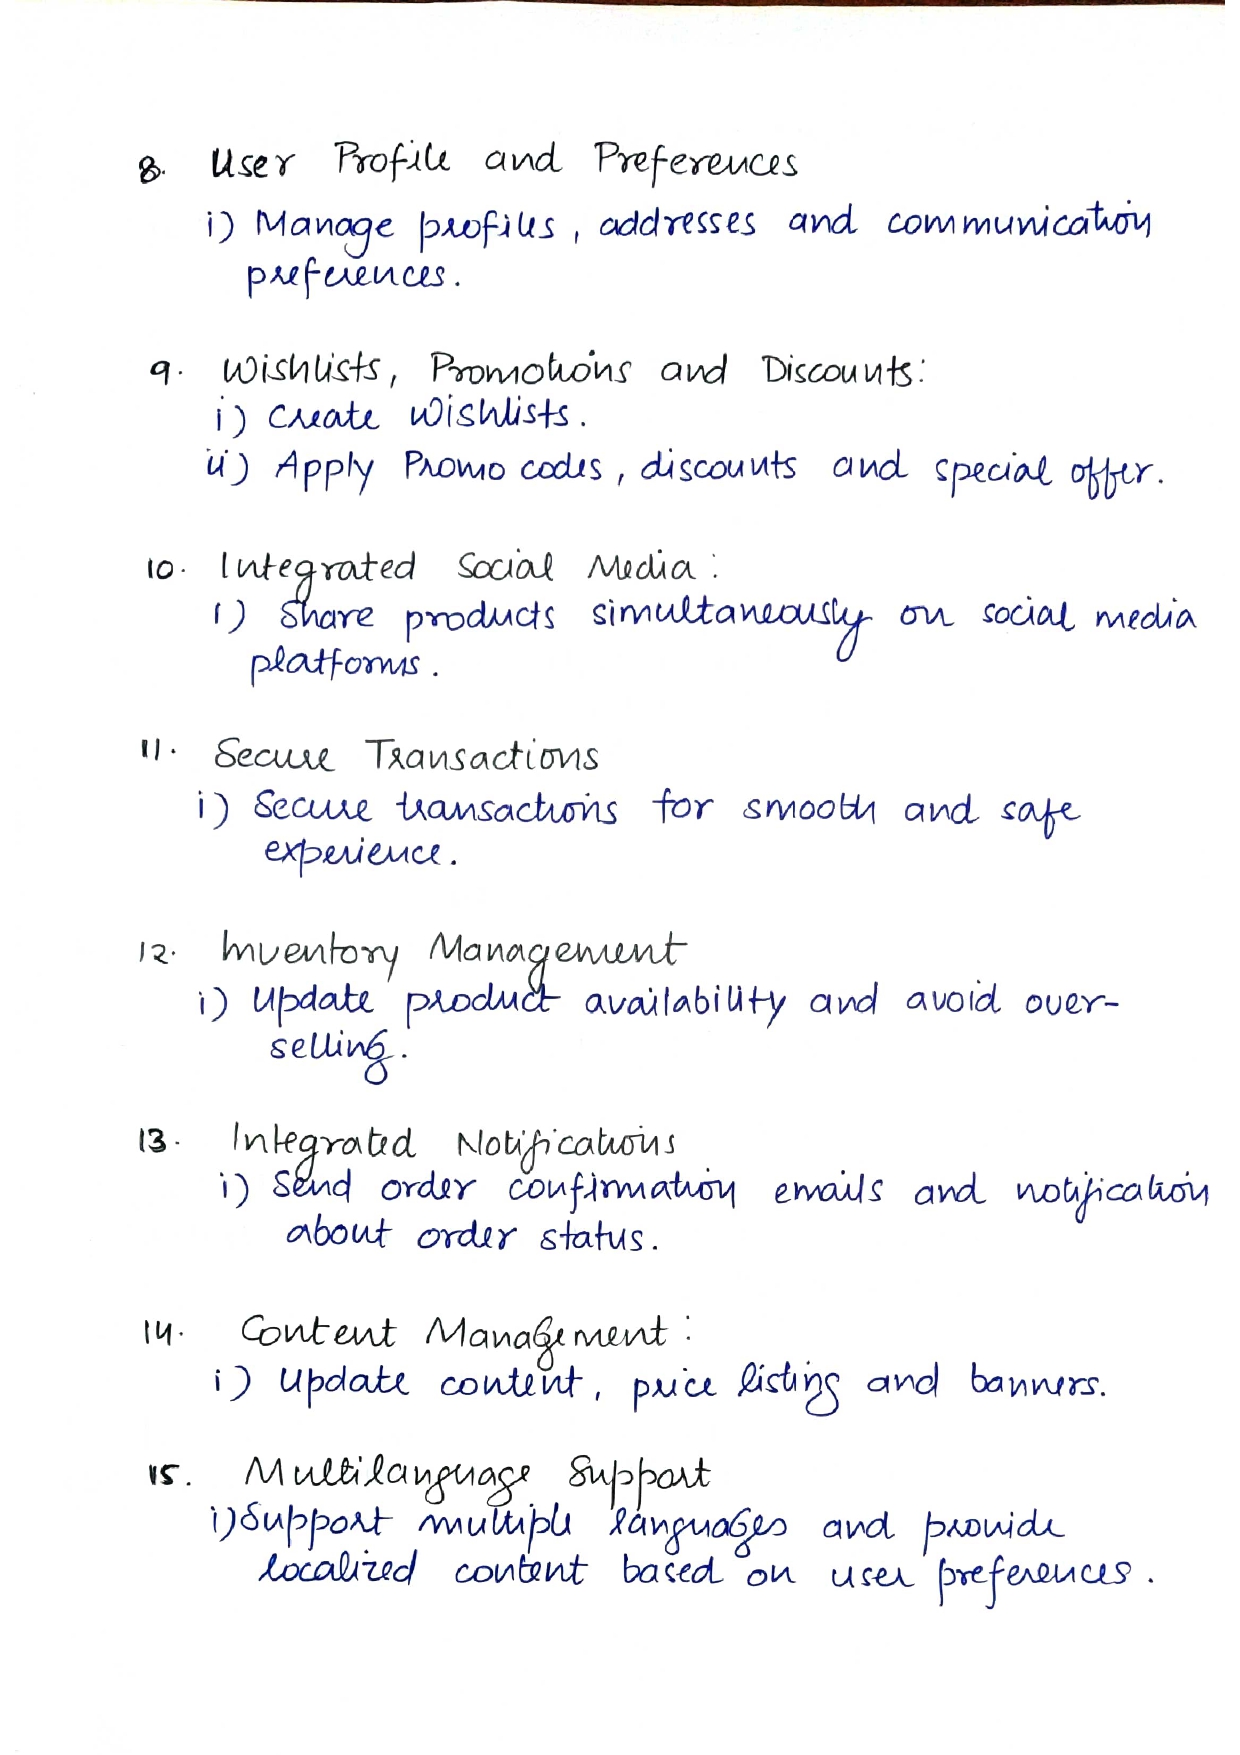 8. User Profile and Preferences
i) Manage profiles, addresses and communication
preferences.
9. Wishlists, Promotions and Discounts:
i) Create Wishlists.
ii) Apply Promo codes, discounts and special offer.
10. Integrated Social Media:
i) Share products simultaneously on social media
platforms.
11. Secure Transactions
i) Secure transactions for smooth and safe
experience.
12. Inventory Management
i) Update product availability and avoid over-
selling.
13. Integrated Notifications
i) Send order confirmation emails and notification
about order status.
14. Content Management:
i) Update content, price listing and banners.
15. Multilanguage Support
i) Support multiple languages and provide
localized content based on user preferences.